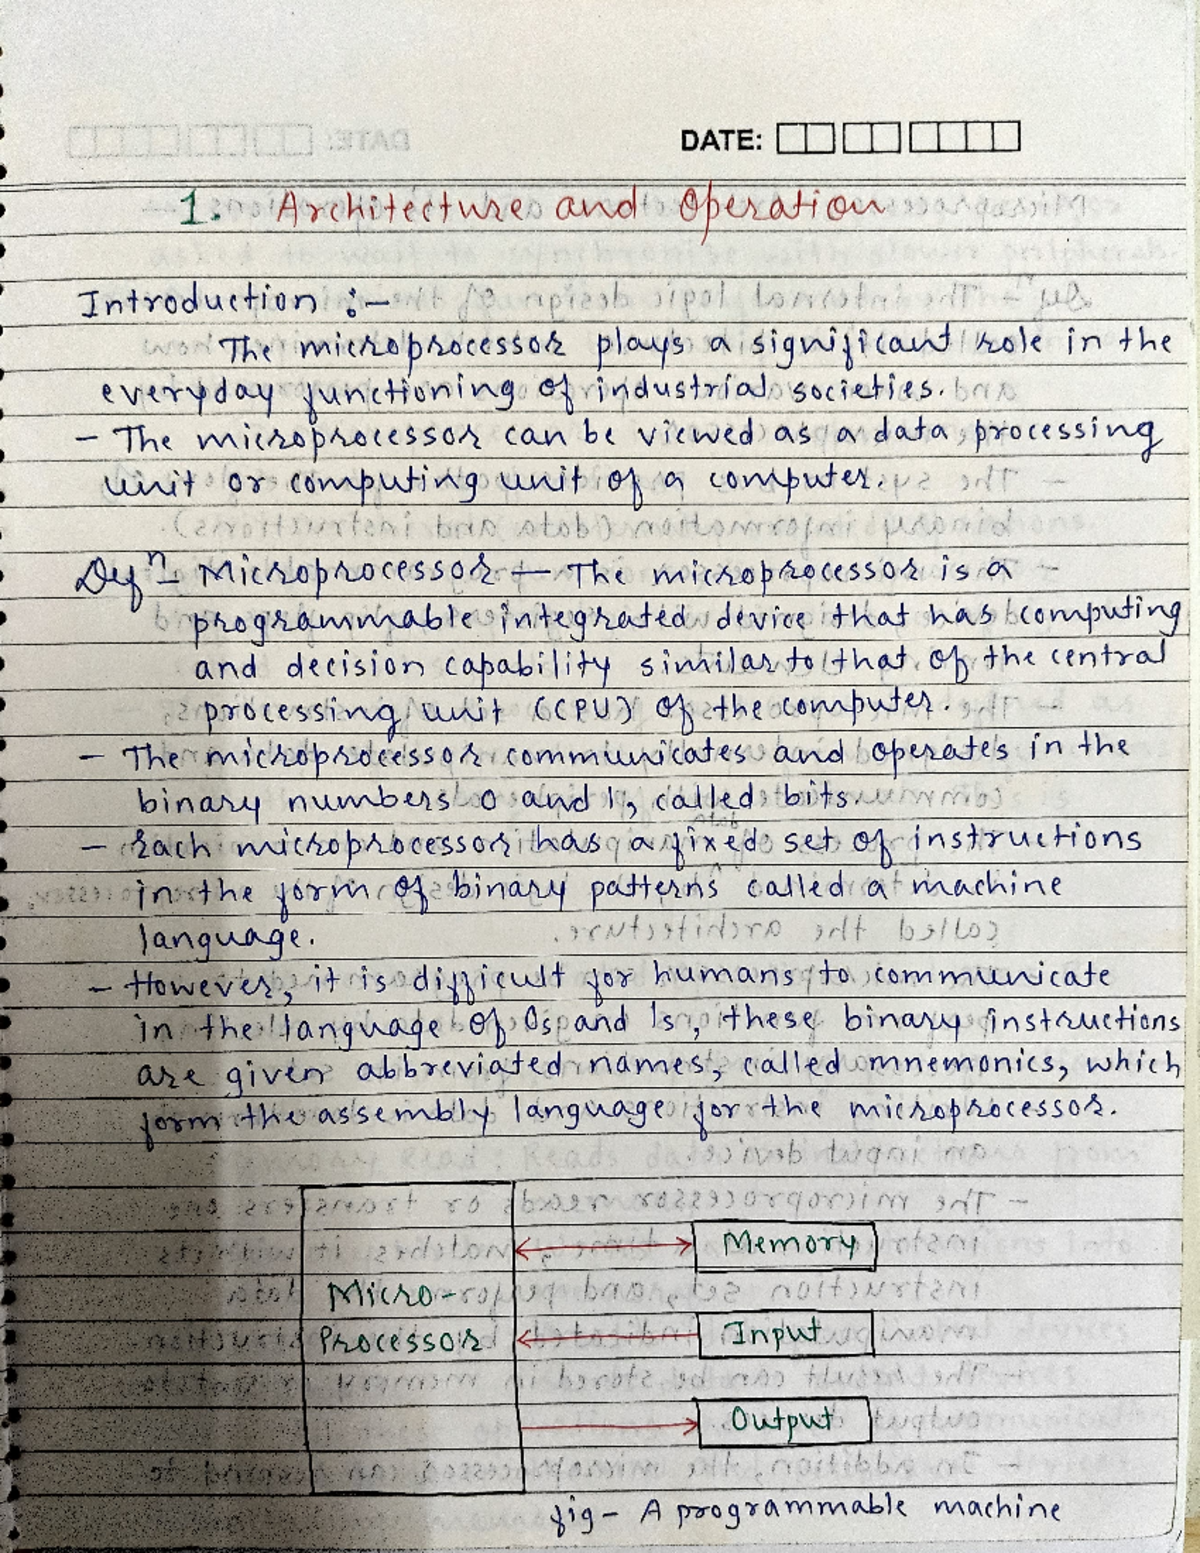 DATE:
1. Architecture and Operation
Introduction :-
The microprocessor plays a significant role in the
everyday functioning of industrial societies.
- The microprocessor can be viewed as a data processing
unit or computing unit of a computer.
Defⁿ - Microprocessor - The microprocessor is a
programmable integrated device that has computing
and decision capability similar to that of the central
processing unit (CPU) of the computer.
- The microprocessor communicates and operates in the
binary numbers 0 and 1, called bits.
- Each microprocessor has a fixed set of instructions
in the form of binary patterns called a machine
language.
- However, it is difficult for humans to communicate
in the language of 0s and 1s, these binary instructions
are given abbreviated names, called mnemonics, which
form the assembly language for the microprocessor.
Memory
Micro-
Processor
Input
Output
fig - A programmable machine